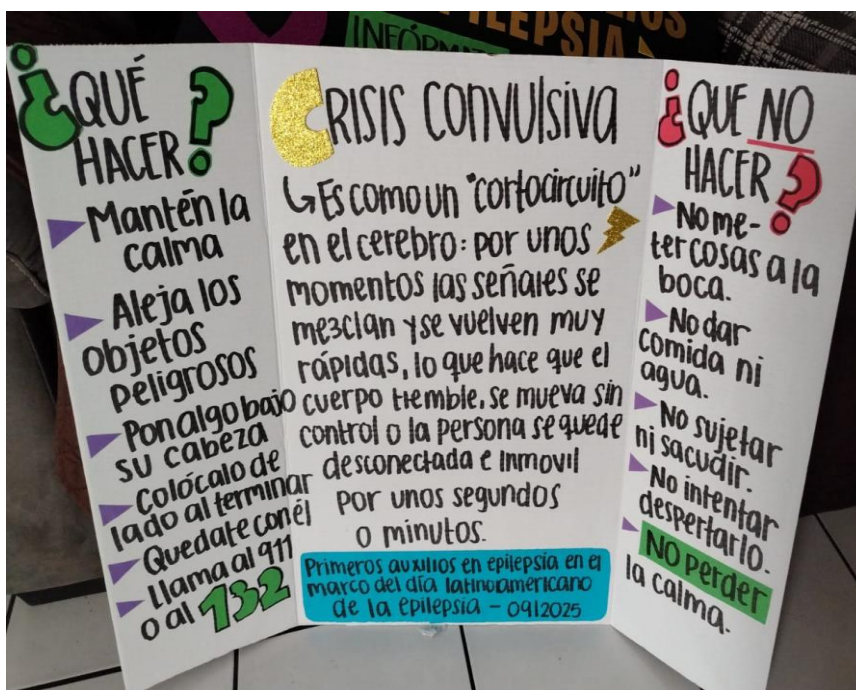 EPILEPSIA
INFÓRMATE
¿QUÉ
HACER?
Mantén la
calma
Aleja los
objetos
peligrosos
Pon algo bajo
su cabeza
Colócalo de
lado al terminar
Quedate con él
Llama al 911
o al 132
CRISIS CONVULSIVA
Es como un "cortocircuito"
en el cerebro: por unos
momentos las señales se
mezclan y se vuelven muy
rápidas, lo que hace que el
cuerpo tiemble, se mueva sin
control o la persona se quede
desconectada e inmovil
por unos segundos
o minutos.
Primeros auxilios en epilepsia en el
marco del día latinoamericano
de la epilepsia - 0912025
¿QUE NO
HACER?
No me-
ter cosas a la
boca.
No dar
comida ni
agua.
No sujetar
ni sacudir.
No intentar
despertarlo.
NO perder
la calma.